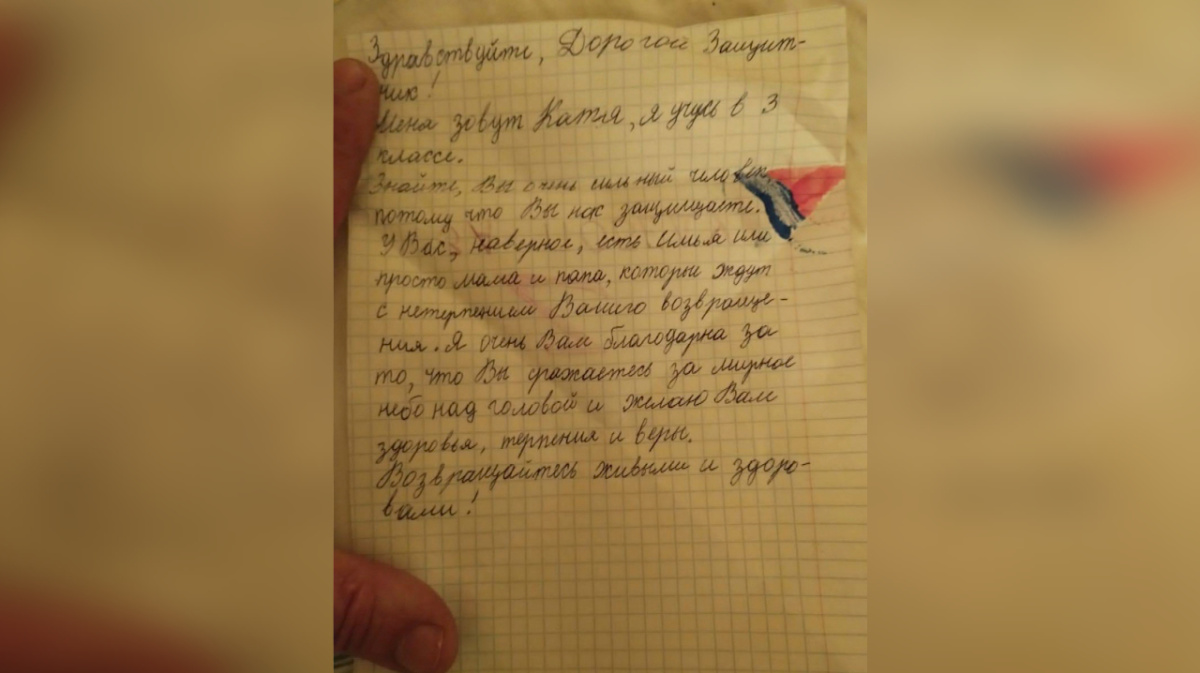 Здравствуйте, Дорогой Защит-
ник!
Меня зовут Катя, я учусь в 3
классе.
Знайте, Вы очень сильный человек,
потому что Вы нас защищаете.
У Вас, наверное, есть семья или
просто мама и папа, которые ждут
с нетерпением Вашего возвраще-
ния. Я очень Вам благодарна за
то, что Вы сражаетесь за мирное
небо над головой и желаю Вам
здоровья, терпения и веры.
Возвращайтесь живыми и здоро-
вами!